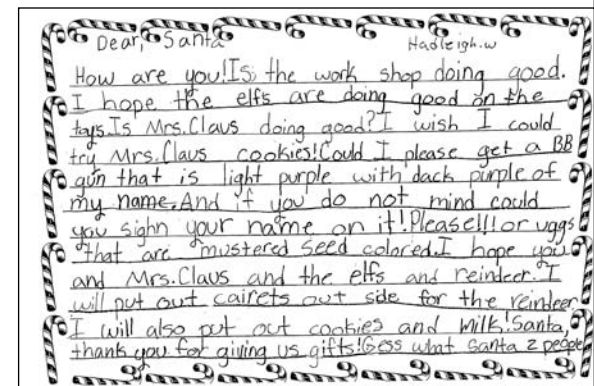 Dear, Santa
Hadleigh.w
How are you!Is the work shop doing good.
I hope the elfs are doing good on the
toys.Is Mrs.Claus doing good?I wish I could
try Mrs.Claus cookies!Could I please get a BB
gun that is light purple with dack purple of
my name.And if you do not mind could
you sighn your name on it!Please!!!or uggs
that are mustered seed colored.I hope you
and Mrs.Claus and the elfs and reindeer.I
will put out cairets out side for the reindeer
I will also put out cookies and milk!Santa,
thank you for giving us gifts!Gess what santa 2 people